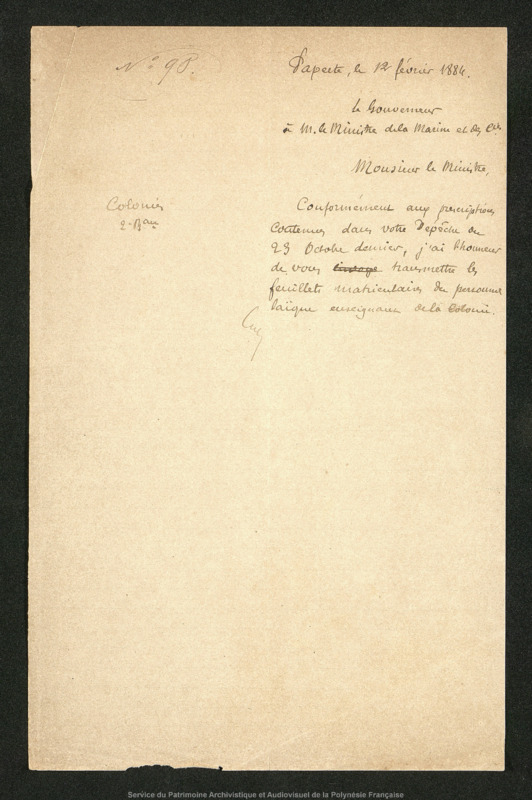 N° 98.
Papeete, le 12 février 1884.
Le Gouverneur
à M. le Ministre de la Marine et des Cies
Monsieur le Ministre,
Colonies
2e Bau
Conformément aux prescriptions
contenues dans votre Dépêche du
23 Octobre dernier, j'ai l'honneur
de vous transmettre les
feuillets matriculaires du personnel
laïque enseignant de la Colonie.
Service du Patrimoine Archivistique et Audiovisuel de la Polynésie Française